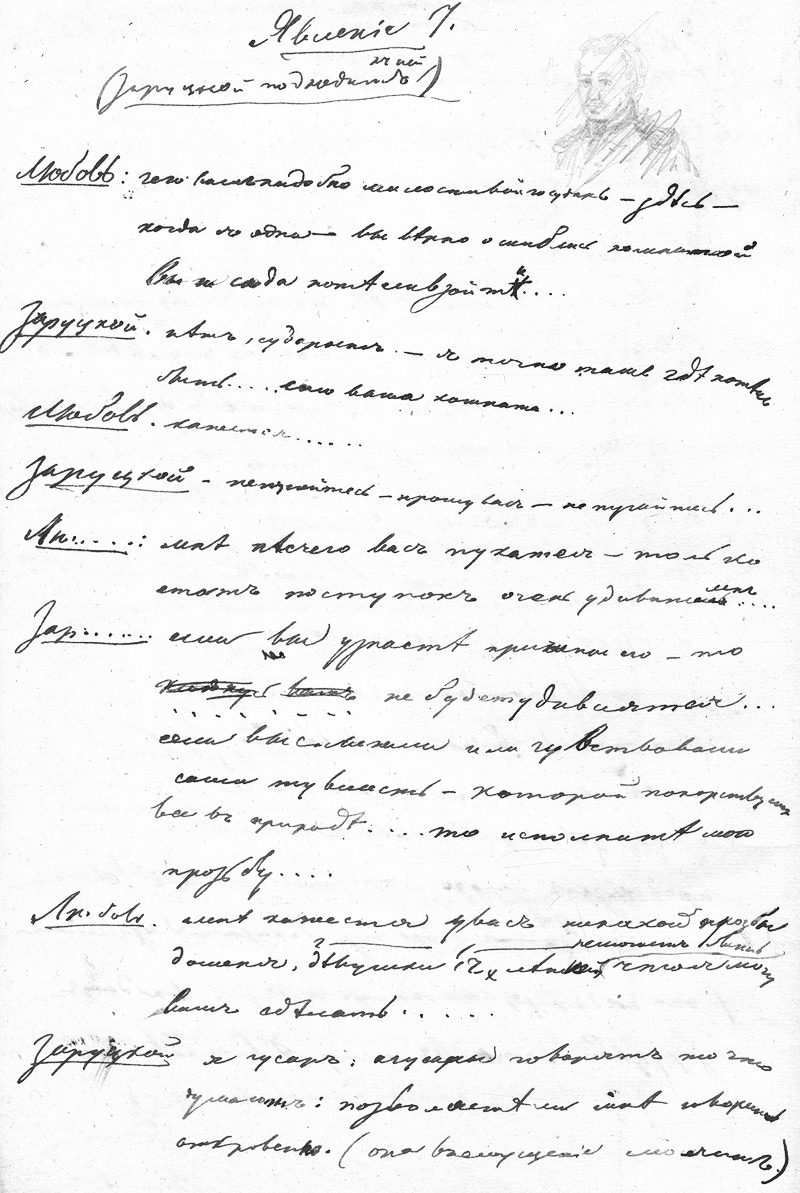 Явленіе 7.
(Заруцкой подходитъ къ ней)
Любовь: чего вамъ надобно милостивый государь – здѣсь –
когда я одна – вы вѣрно ошиблись комнатой
Вы не сюда хотѣли взойти....
Заруцкой. нѣтъ, сударыня. – я точно тамъ гдѣ хотѣлъ
быть.... это ваша комната...
Любовь. кажется......
Заруцкой – не пугайтесь – прошу васъ – не пугайтесь...
Лю.....: мнѣ нѣсчего васъ пугатся – только
етотъ поступокъ очень удивителенъ....
Зар...... если вы узнаетѣ причину его – то
не будете удивлятся...
если вы слыхали или чувствовали
сами ту власть – которой покорствуетъ
все въ природѣ.... то исполнитѣ мою
прозьбу....
Любовь. мнѣ кажется у васъ никакой прозьбы не можетъ быть
до меня, дѣвушки 17 лѣтней, что я могу
вамъ сдѣлать.....
Заруцкой я гусаръ: а гусары говорятъ то что
думаютъ: позволяетѣ ли мнѣ говорить
откровенно. (она въ смущеніе молчитъ.)